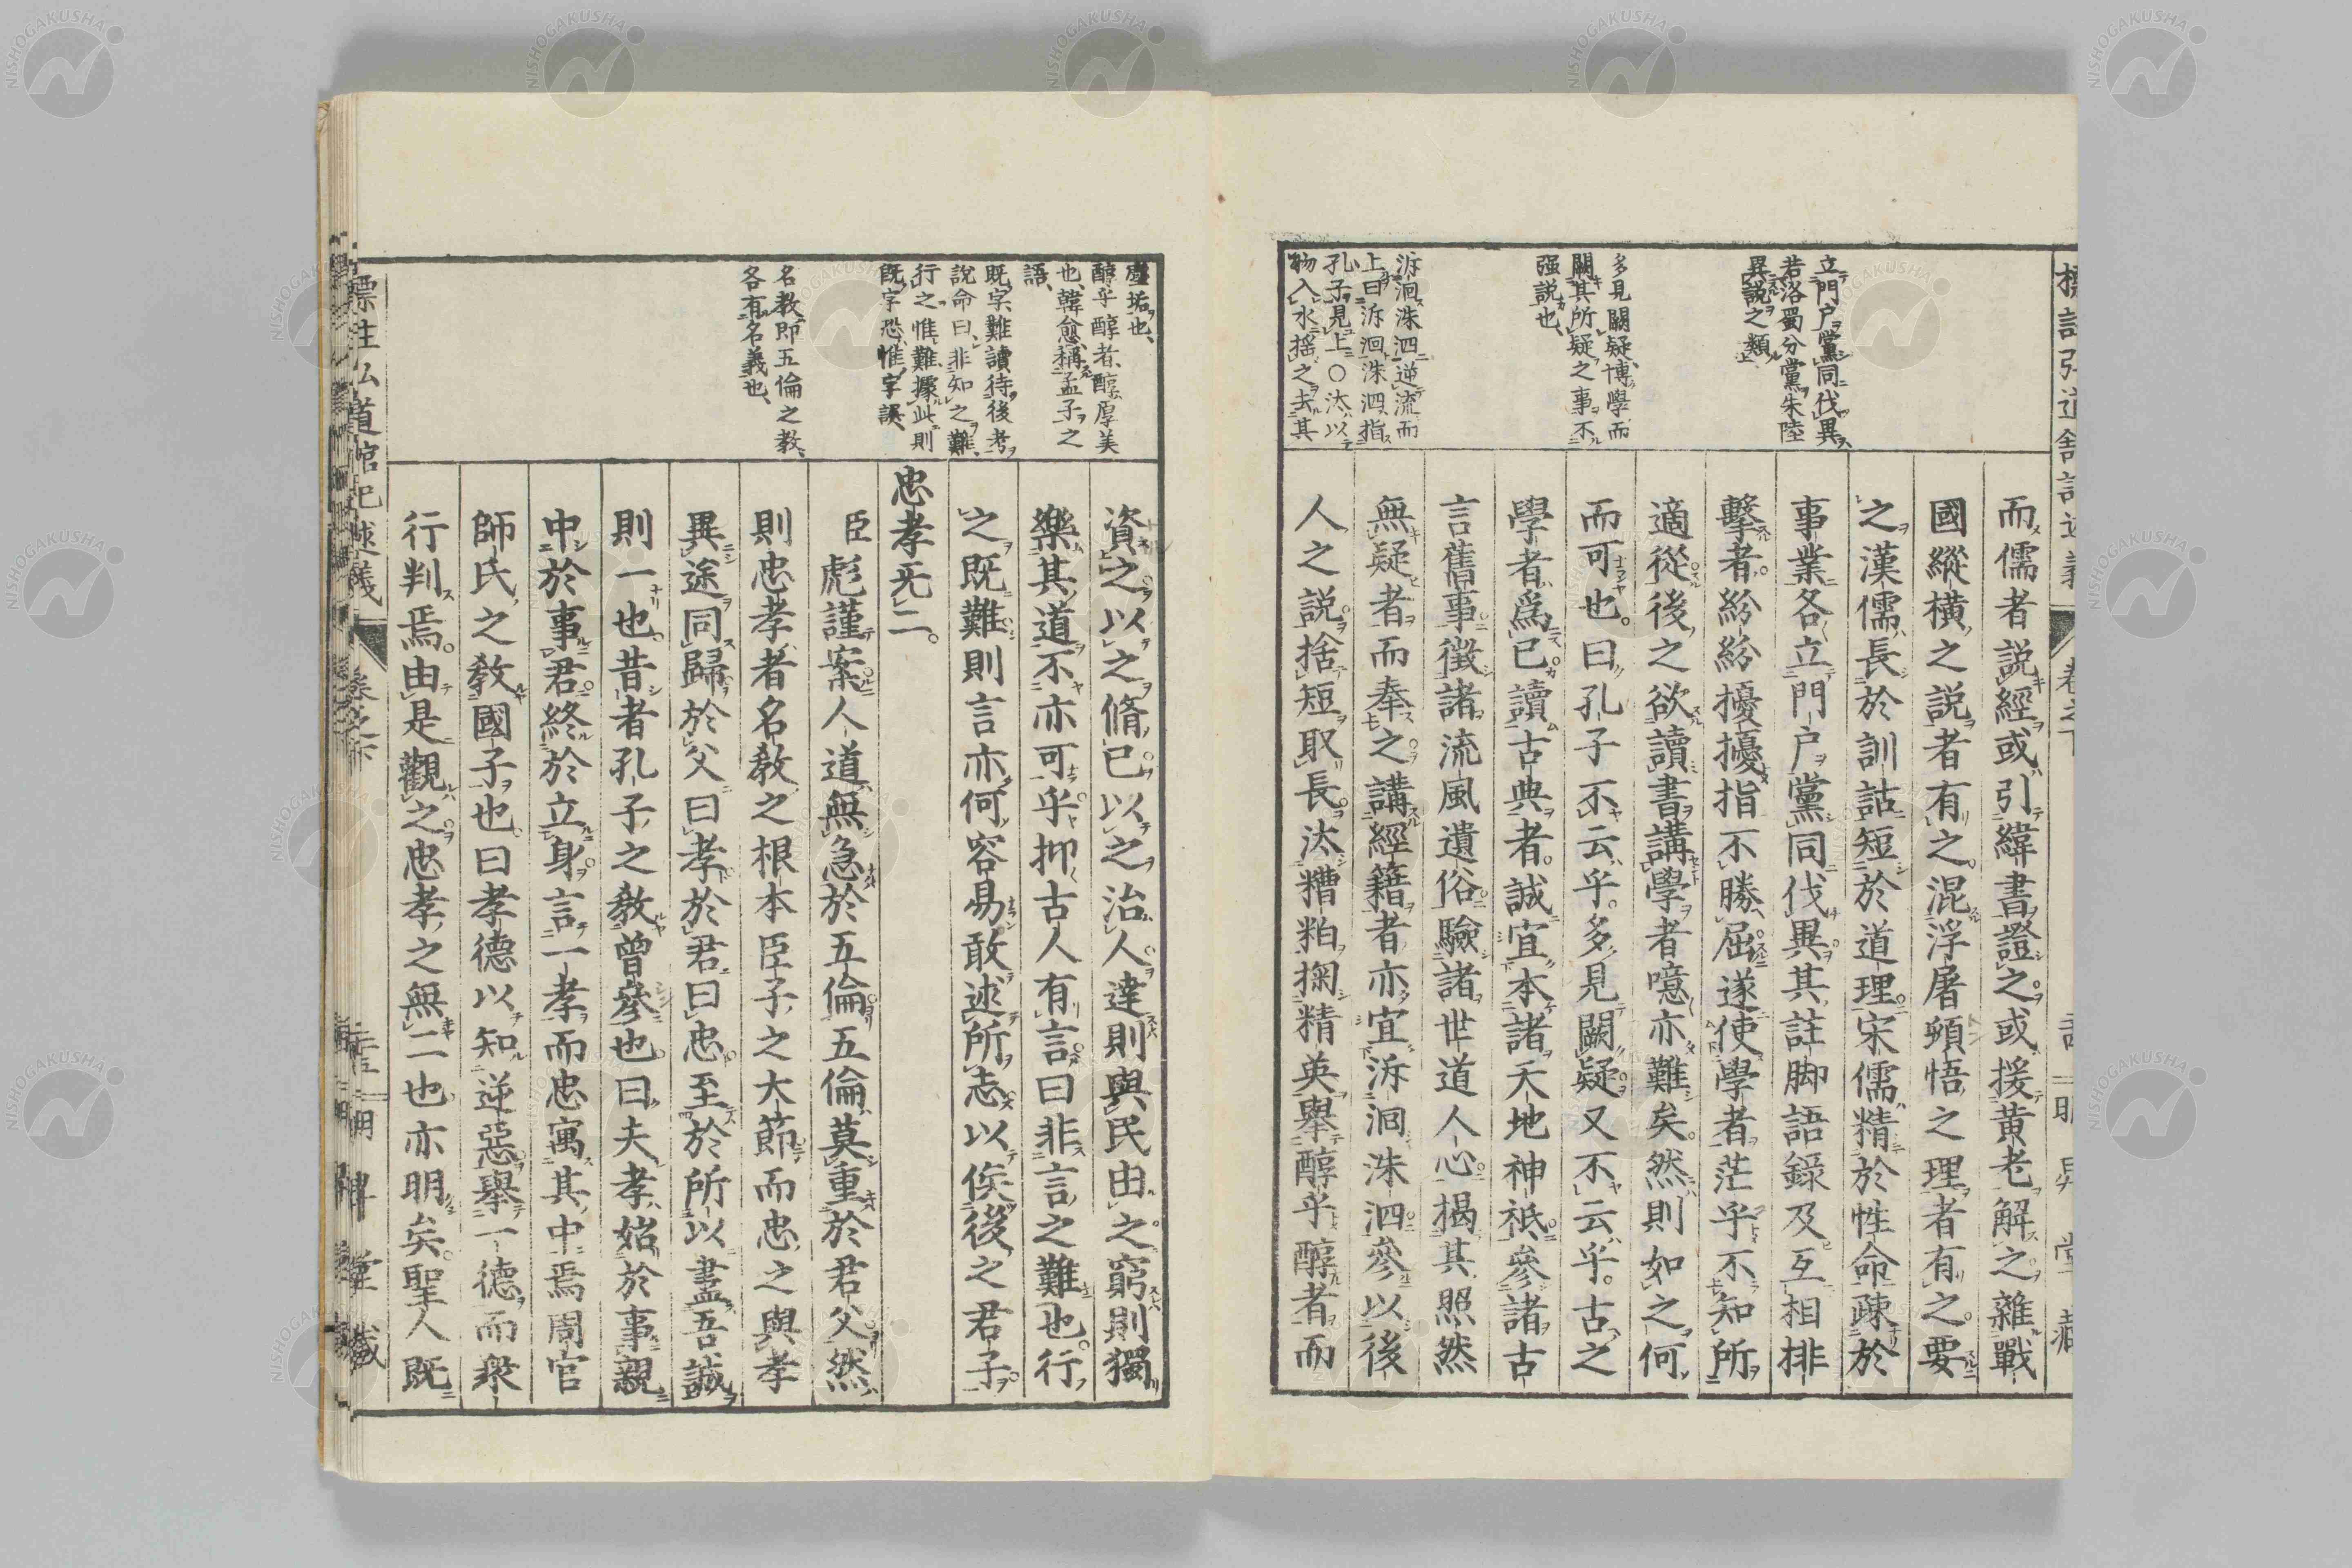 立門戸黨同伐異
若洛蜀分黨朱陸
異說之類
多見闕疑博學而
闕其所疑之事不
强說也、
泝洄洙泗逆流而
上曰泝洄洙泗指
孔子見上〇汰以
物入水搖之去其
而儒者說經或引緯書證之或援黄老解之雜戰
國縱橫之說者有之混浮屠頓悟之理者有之要
之漢儒長於訓詁短於道理宋儒精於性命疎於
事業各立門戸黨同伐異其註脚語錄及互相排
擊者紛紛擾擾指不勝屈遂使學者茫乎不知所
適從後之欲讀書講學者噫亦難矣然則如之何
而可也曰孔子不云乎多見闕疑又不云乎古之
學者爲己讀古典者誠宜本諸天地神祇參諸古
言舊事徵諸流風遺俗驗諸世道人心揭其照然
無疑者而奉之講經籍者亦宜泝洄洙泗參以後
人之說捨短取長汰糟粕掬精英舉醇乎醇者而
塵垢也、
醇乎醇者、醇厚美
也、韓愈稱孟子之
語、
既字難讀待後考
說命曰、非知之難、
行之惟難、據此則
既字恐惟字誤、
名教即五倫之教、
各有名義也、
資之以之脩己以之治人達則與民由之窮則獨
樂其道不亦可乎抑古人有言曰非言之難也行
之既難則言亦何容易敢述所志以俟後之君子
忠孝无二。
臣彪謹案人道無急於五倫五倫莫重於君父然
則忠孝者名教之根本臣子之大節而忠之與孝
異途同歸於父曰孝於君曰忠至於所以盡吾誠
則一也昔者孔子之教曾參也曰夫孝始於事親
中於事君終於立身言一孝而忠寓其中焉周官
師氏之教國子也曰孝德以知逆惡舉一德而衆
行判焉由是觀之忠孝之無二也亦明矣聖人既
標註弘道館記述義